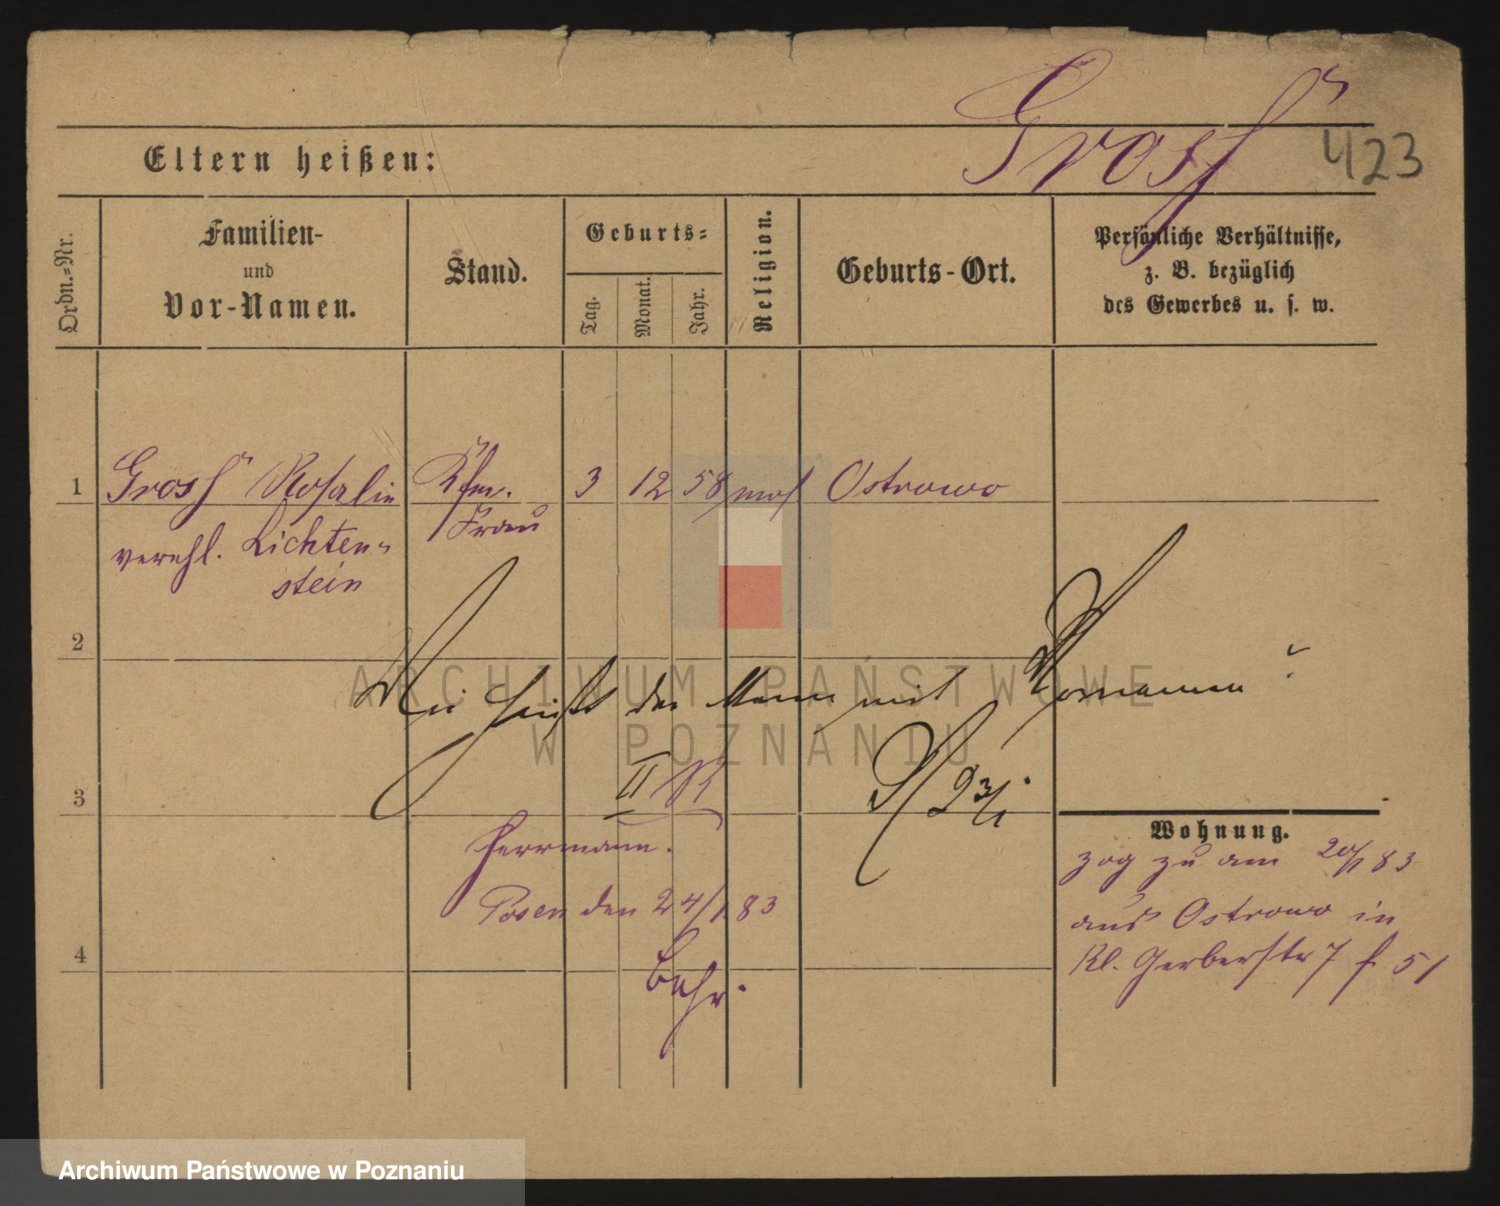 Gross
423
Eltern heißen:
Ordn.-Nr.
Familien-
und
Vor-Namen.
Stand.
Geburts-
Tag.
Monat.
Jahr.
Religion.
Geburts-Ort.
Persönliche Verhältnisse,
z. B. bezüglich
des Gewerbes u. s. w.
1 Gross Rosalie Kfm. 3 12 58 mos Ostrowo
Frau
verehl. Lichten-
stein
2
Wie heißt der Mann mit Vornamen?
ARCHIWUM PAŃSTWOWE
W POZNANIU
II R
23/1
3
Wohnung.
Herrmann.
zog zu am 20/1 83
Posen den 24/1 83
aus Ostrowo in
4
Behr.
Kl. Gerberstr 7 f 51
Archiwum Państwowe w Poznaniu